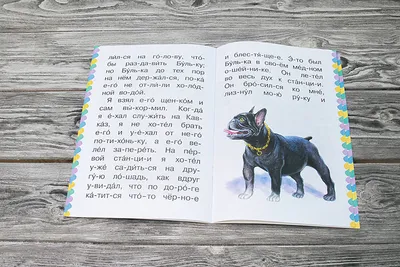 лил-ся на го-ло-ву, что-
бы раз-да-вить Бу́ль-ку;
но Бу́ль-ка до тех пор
на нём дер-жа́л-ся, по-ка́
е-го́ не от-ли́-ли хо-ло́д-
ной во-до́й.
Я взял е-го́ щен-ко́м и
сам вы-кор-мил. Ког-да́
я е́хал слу-жи́ть на Кав-
ка́з, я не хо-те́л брать
е-го́ и у-е́-хал от не-го́
по-ти-хо́нь-ку, а е-го́ ве-
ле́л за-пе-ре́ть. На пе́р-
вой ста́н-ци-и я хо-те́л
у-же́ са-ди́ть-ся на дру-
гу́-ю ло́-шадь, как вдруг
у-ви́-дал, что по до-ро́-ге
ка́-тит-ся что́-то чёр-но-е
и блес-тя́-ще-е. Э́-то был
Бу́ль-ка в сво-ём ме́д-ном
о-ше́й-ни-ке. Он ле-те́л
во весь дух к ста́н-ци-и.
Он бро́-сил-ся ко мне́,
лиз-ну́л мо-ю́ ру́-ку и